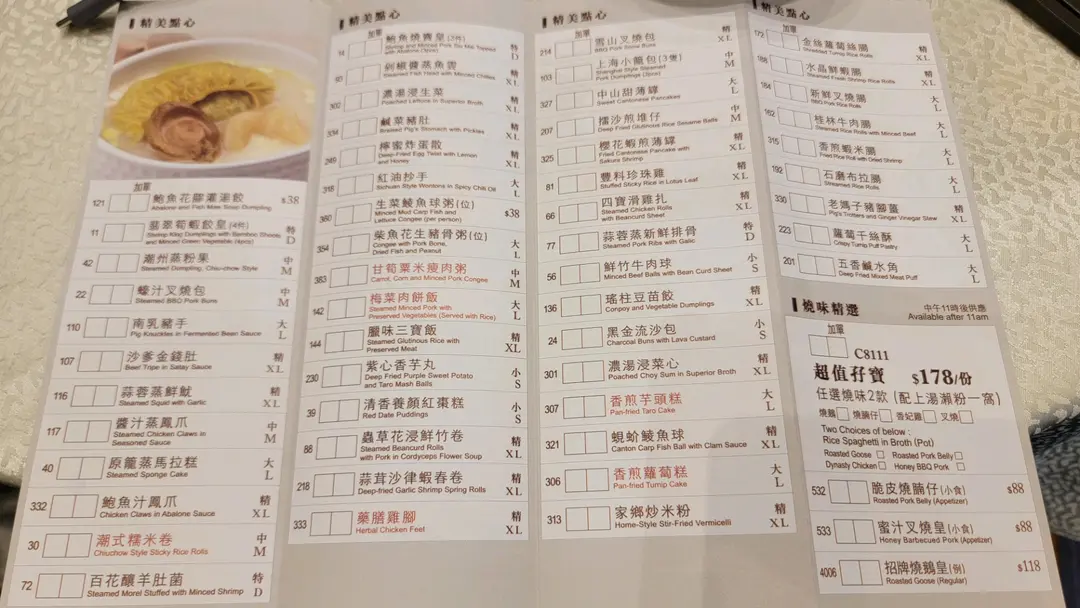 精美點心
加單
121 鮑魚花膠灌湯餃 $38
Abalone and Fish Maw Soup Dumpling
11 翡翠筍蝦餃皇(4件) 特 D
Shrimp King Dumplings with Bamboo Shoots
and Minced Green Vegetable (4pcs)
42 潮州蒸粉果 中 M
Steamed Dumpling, Chiu-chow Style
22 蠔汁叉燒包 中 M
Steamed BBQ Pork Buns
110 南乳豬手 大 L
Pig Knuckles in Fermented Bean Sauce
107 沙爹金錢肚 精 XL
Beef Tripe in Satay Sauce
116 蒜蓉蒸鮮魷 精 XL
Steamed Squid with Garlic
117 醬汁蒸鳳爪 中 M
Steamed Chicken Claws in
Seasoned Sauce
40 原籠蒸馬拉糕 大 L
Steamed Sponge Cake
332 鮑魚汁鳳爪 精 XL
Chicken Claws in Abalone Sauce
30 潮式糯米卷 中 M
Chiuchow Style Sticky Rice Rolls
72 百花釀羊肚菌 特 D
Steamed Morel Stuffed with Minced Shrimp
精美點心
加單
14 鮑魚燒賣皇(3件) 特 D
Shrimp and Minced Pork Siu Mai Topped
with Abalone (3pcs)
93 剁椒醬蒸魚雲 精 XL
Steamed Fish Head with Minced Chilies
302 濃湯浸生菜 精 XL
Poached Lettuce in Superior Broth
334 鹹菜豬肚 精 XL
Braised Pig's Stomach with Pickles
249 檸蜜炸蛋散 精 XL
Deep-Fried Egg Twist with Lemon
and Honey
318 紅油抄手 大 L
Sichuan Style Wontons in Spicy Chili Oil
360 生菜鯪魚球粥(位) $38
Minced Mud Carp Fish and
Lettuce Congee (per person)
354 柴魚花生豬骨粥(位) 大 L
Congee with Pork Bone,
Dried Fish and Peanut
363 甘筍粟米瘦肉粥 中 M
Carrot, Corn and Minced Pork Congee
142 梅菜肉餅飯 大 L
Steamed Minced Pork with
Preserved Vegetables (Served with Rice)
144 臘味三寶飯 精 XL
Steamed Glutinous Rice with
Preserved Meat
230 紫心香芋丸 小 S
Deep Fried Purple Sweet Potato
and Taro Mash Balls
39 清香養顏紅棗糕 小 S
Red Date Puddings
88 蟲草花浸鮮竹卷 精 XL
Steamed Beancurd Rolls
with Pork in Cordyceps Flower Soup
218 蒜茸沙律蝦春卷 精 XL
Deep-fried Garlic Shrimp Spring Rolls
333 藥膳雞腳 精 XL
Herbal Chicken Feet
精美點心
加單
214 雪山叉燒包 精 XL
BBQ Pork Snow Buns
103 上海小籠包(3隻) 中 M
Shanghai Style Steamed
Pork Dumplings (3pcs)
327 中山甜薄罉 大 L
Sweet Cantonese Pancakes
207 擂沙煎堆仔 中 M
Deep Fried Glutinous Rice Sesame Balls
325 櫻花蝦煎薄罉 精 XL
Fried Cantonese Pancake with
Sakura Shrimp
81 豐料珍珠雞 精 XL
Stuffed Sticky Rice in Lotus Leaf
66 四寶滑雞扎 精 XL
Steamed Chicken Rolls
with Beancurd Sheet
77 蒜蓉蒸新鮮排骨 特 D
Steamed Pork Ribs with Garlic
56 鮮竹牛肉球 小 S
Minced Beef Balls with Bean Curd Sheet
136 瑤柱豆苗餃 精 XL
Conpoy and Vegetable Dumplings
24 黑金流沙包 小 S
Charcoal Buns with Lava Custard
301 濃湯浸菜心 精 XL
Poached Choy Sum in Superior Broth
307 香煎芋頭糕 大 L
Pan-fried Taro Cake
321 蜆蚧鯪魚球 精 XL
Canton Carp Fish Ball with Clam Sauce
306 香煎蘿蔔糕 大 L
Pan-fried Turnip Cake
313 家鄉炒米粉 精 XL
Home-Style Stir-Fried Vermicelli
精美點心
加單
172 金絲蘿蔔絲腸 精 XL
Shredded Turnip Rice Rolls
168 水晶鮮蝦腸 精 XL
Steamed Fresh Shrimp Rice Rolls
164 新鮮叉燒腸 大 L
BBQ Pork Rice Rolls
162 桂林牛肉腸 大 L
Steamed Rice Rolls with Minced Beef
315 香煎蝦米腸 大 L
Fried Rice Roll with Dried Shrimp
192 石磨布拉腸 大 L
Steamed Rice Rolls
330 老媽子豬腳薑 精 XL
Pig's Trotters and Ginger Vinegar Stew
223 蘿蔔千絲酥 大 L
Crispy Turnip Puff Pastry
201 五香鹹水角 大 L
Deep Fried Mixed Meat Puff
燒味精選 中午11時後供應
Available after 11am
加單
C8111
超值孖寶 $178/份
任選燒味2款 (配上湯瀨粉一窩)
燒鵝 燒腩仔 香妃雞 叉燒
Two Choices of below :
Rice Spaghetti in Broth (Pot)
Roasted Goose Roasted Pork Belly
Dynasty Chicken Honey BBQ Pork
532 脆皮燒腩仔(小食) $88
Roasted Pork Belly (Appetizer)
533 蜜汁叉燒皇(小食) $88
Honey Barbecued Pork (Appetizer)
4006 招牌燒鵝皇(例) $118
Roasted Goose (Regular)